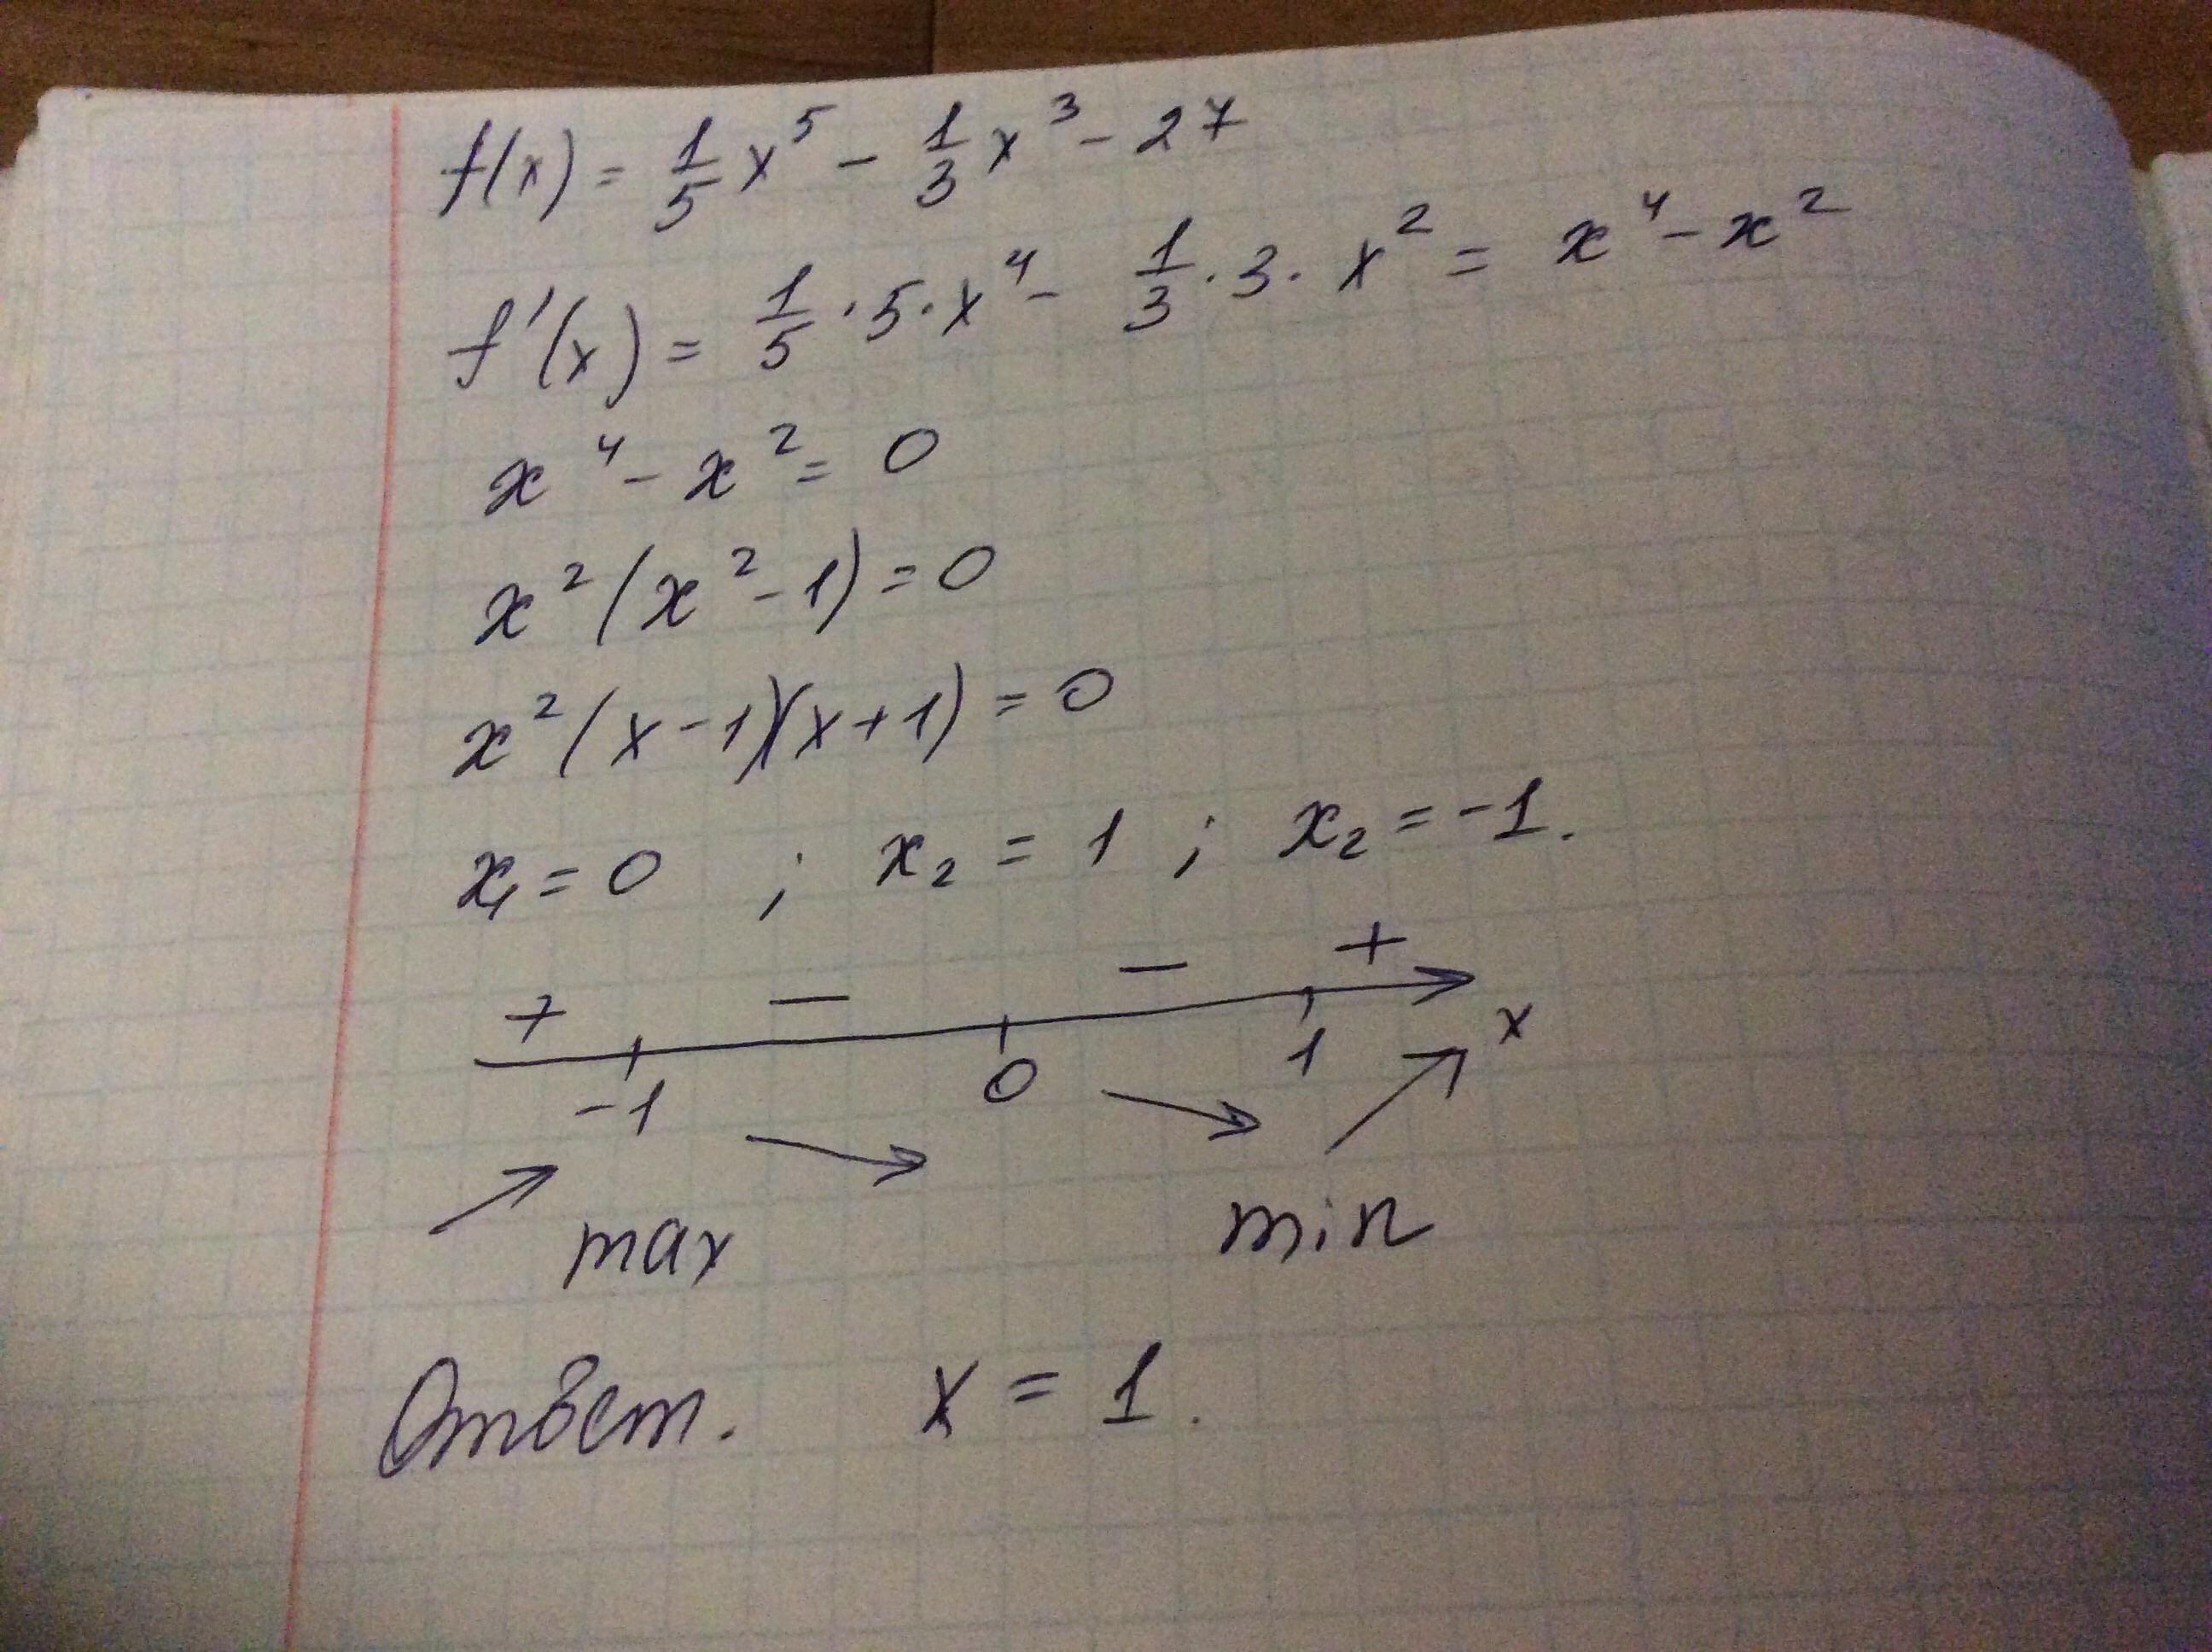 f(x) = 1/5 x⁵ - 1/3 x³ - 27
f'(x) = 1/5 · 5 · x⁴ - 1/3 · 3 · x² = x⁴ - x²
x⁴ - x² = 0
x² (x² - 1) = 0
x² (x - 1)(x + 1) = 0
x₁ = 0 ; x₂ = 1 ; x₂ = -1.
+ − − +
-1 0 1 x
max min
Ответ. x = 1.